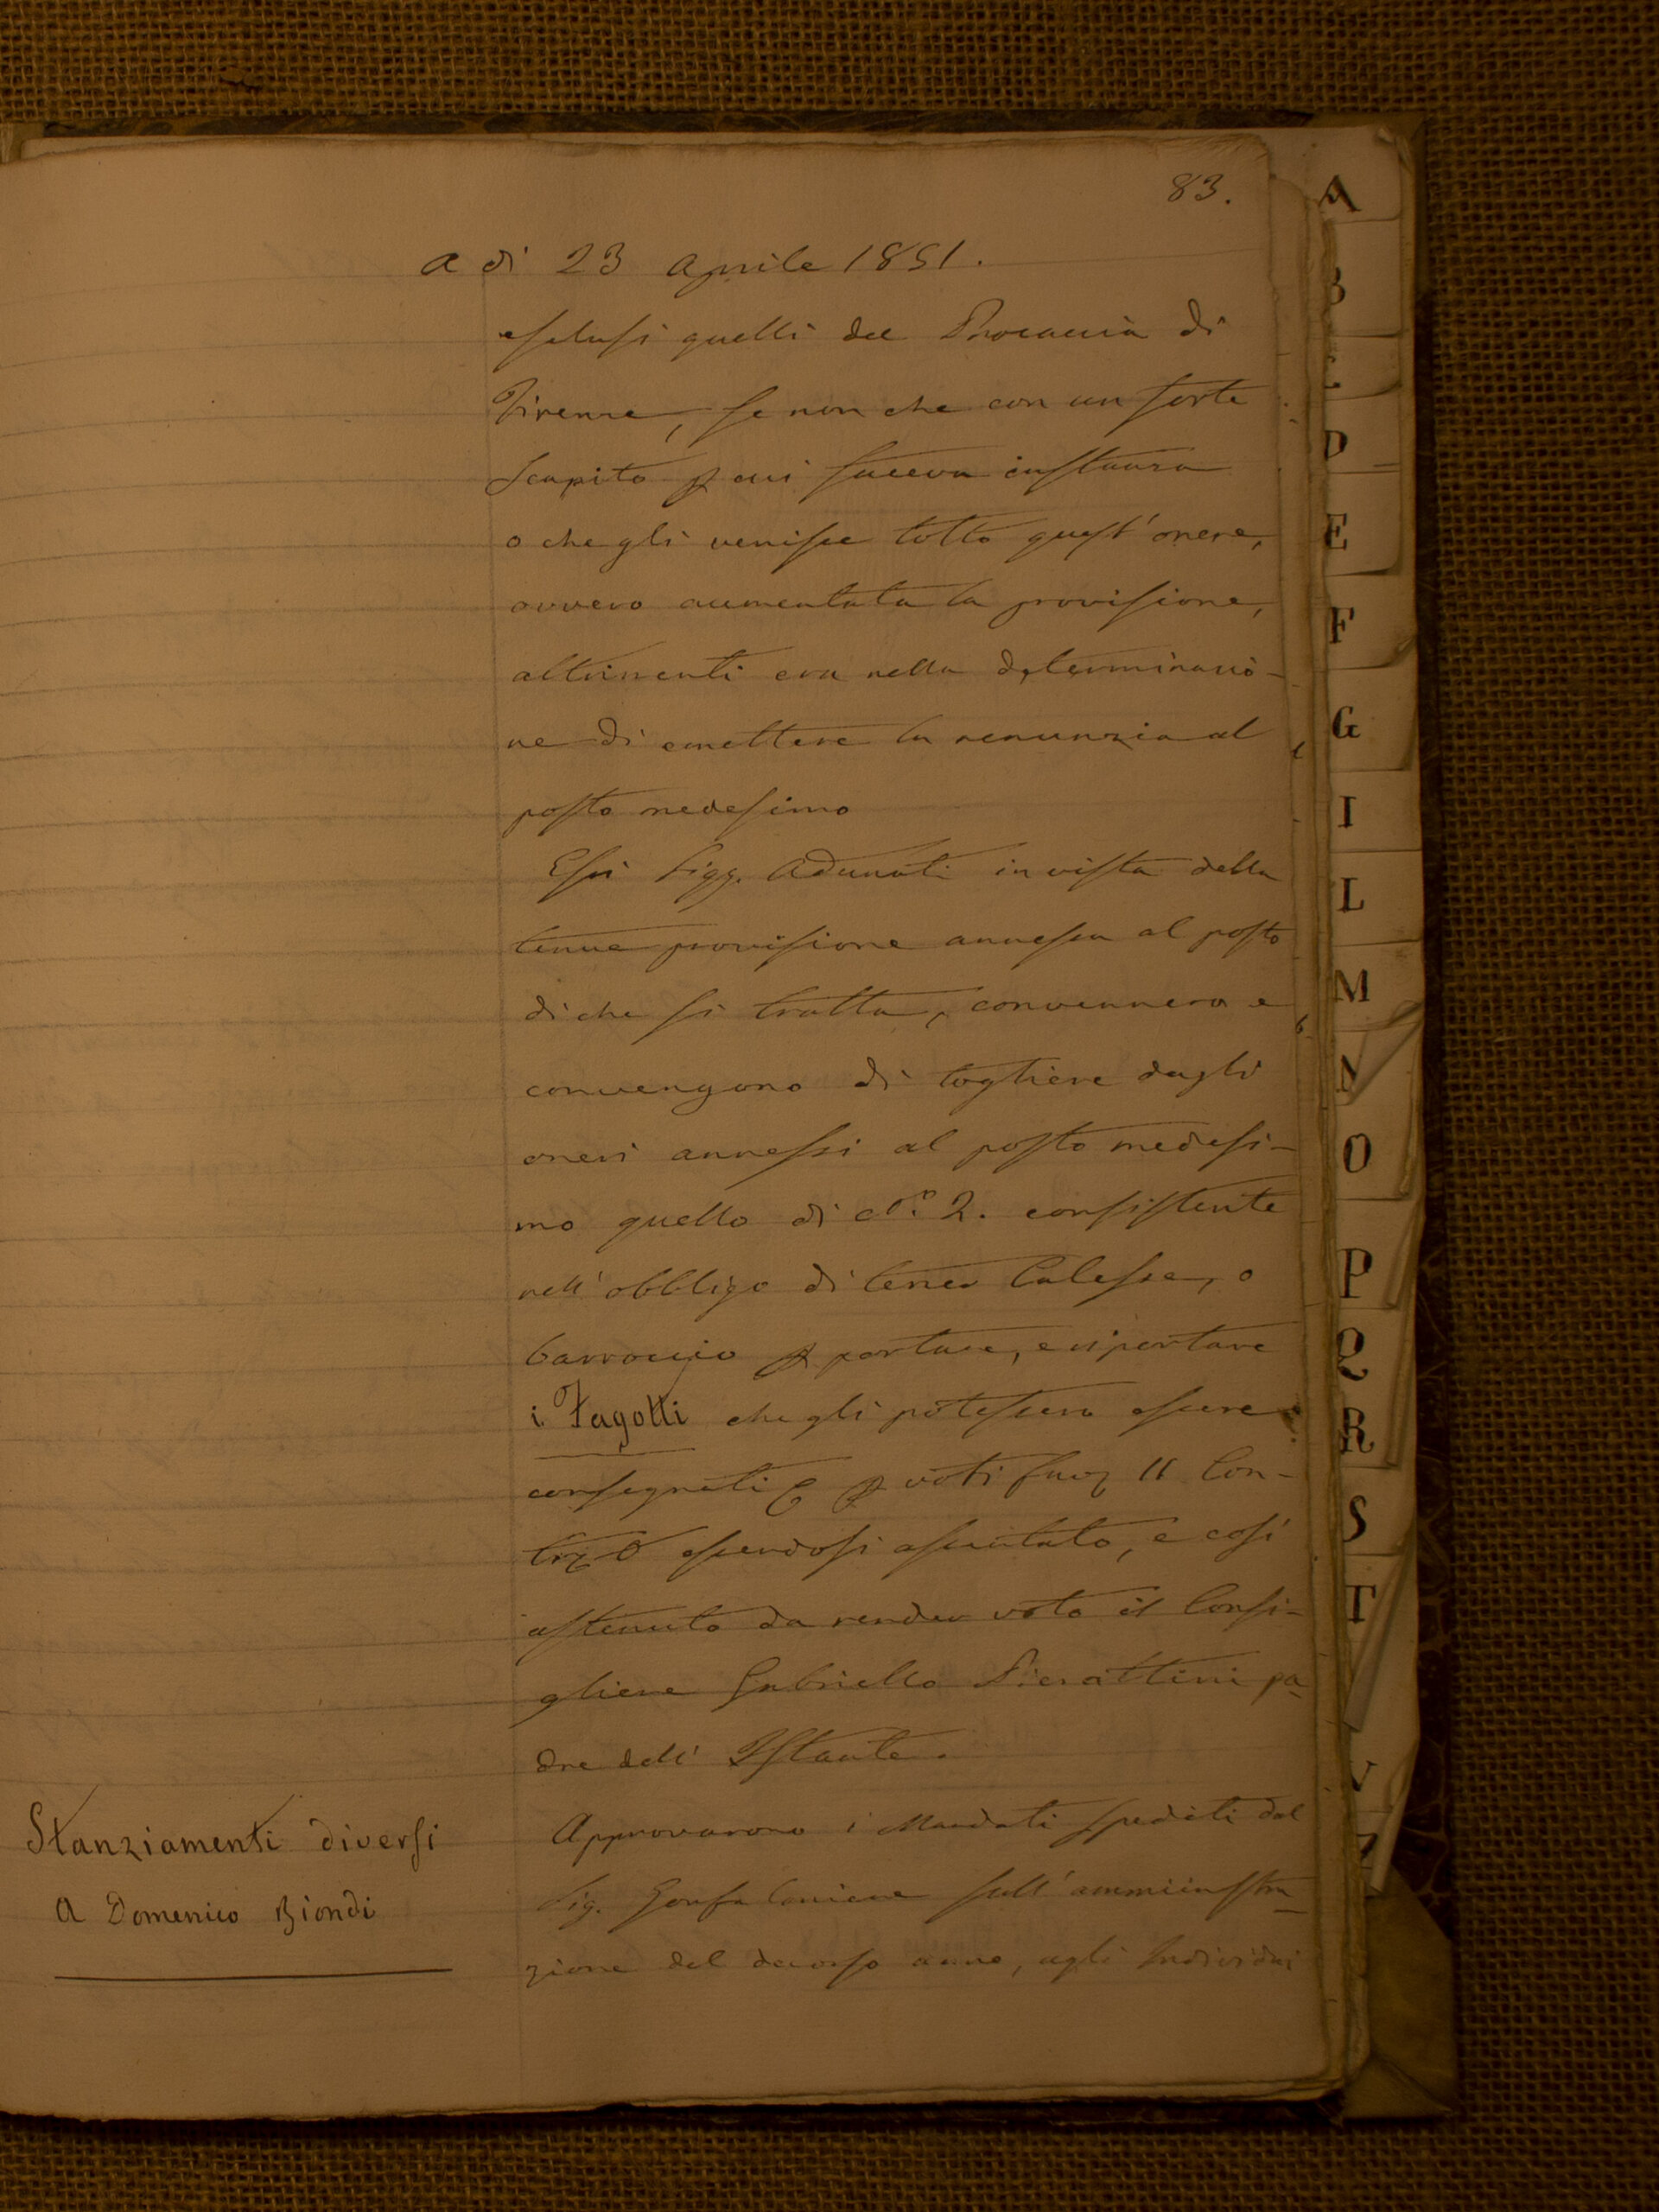 83.
a dì 23 Aprile 1851.
esclusi quelli del Procaccia di
Firenze, se non che con un forte
Scapito p cui faceva instanza
o che gli venisse tolto quest'onere,
ovvero aumentata la provisione,
altrimenti era nella determinazio-
ne di emettere la renunzia al
posto medesimo
Essi Sigg. Adunati in vista della
tenue provisione annessa al posto
di che si tratta, convennero e
convengono di togliere dagli
oneri annessi al posto medesi-
mo quello di N.° 2. consistente
nell'obbligo di tener Calesse, o
barroccio p portare, e riportare
i Fagotti che gli potessero essere
consegnati p voti fav 11 Con-
tr 0 essendosi assentato, e così
astenuto da render voto il Consi-
gliere Gabriello Pierattini pa-
dre dell' Istante.
Stanziamenti diversi
A Domenico Biondi
Approvarono i Mandati spediti dal
Sig. Gonfaloniere sull'amministra
zione del decorso anno, agli Individui
A
B
C
D
E
F
G
I
L
M
N
O
P
Q
R
S
T
V
Z